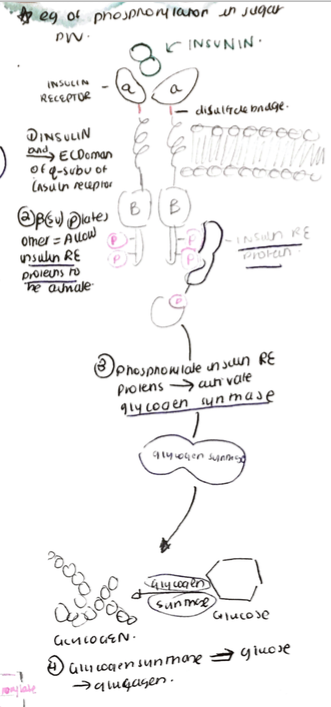 eg of phosphorylation in sugar
PW.
INSUNIN.
INSULIN
RECEPTOR
a
a
disulfide bridge.
① INSULIN
and → ECDoman
of q-subu of
insulin receptor
B
B
② β(su) Ⓟlates
other = Allow
insulin RE
proteins to
be
P
P
P
P
INSULIN RE
protein
P
③ phosphorylate insulin RE
proteins → activate
glycogen synmase
glycogen synmase
glycogen
synmase
GLUCOSE
GLYCOGEN.
④ Glycogen synmase ⇒ glucose
→ glycogen.